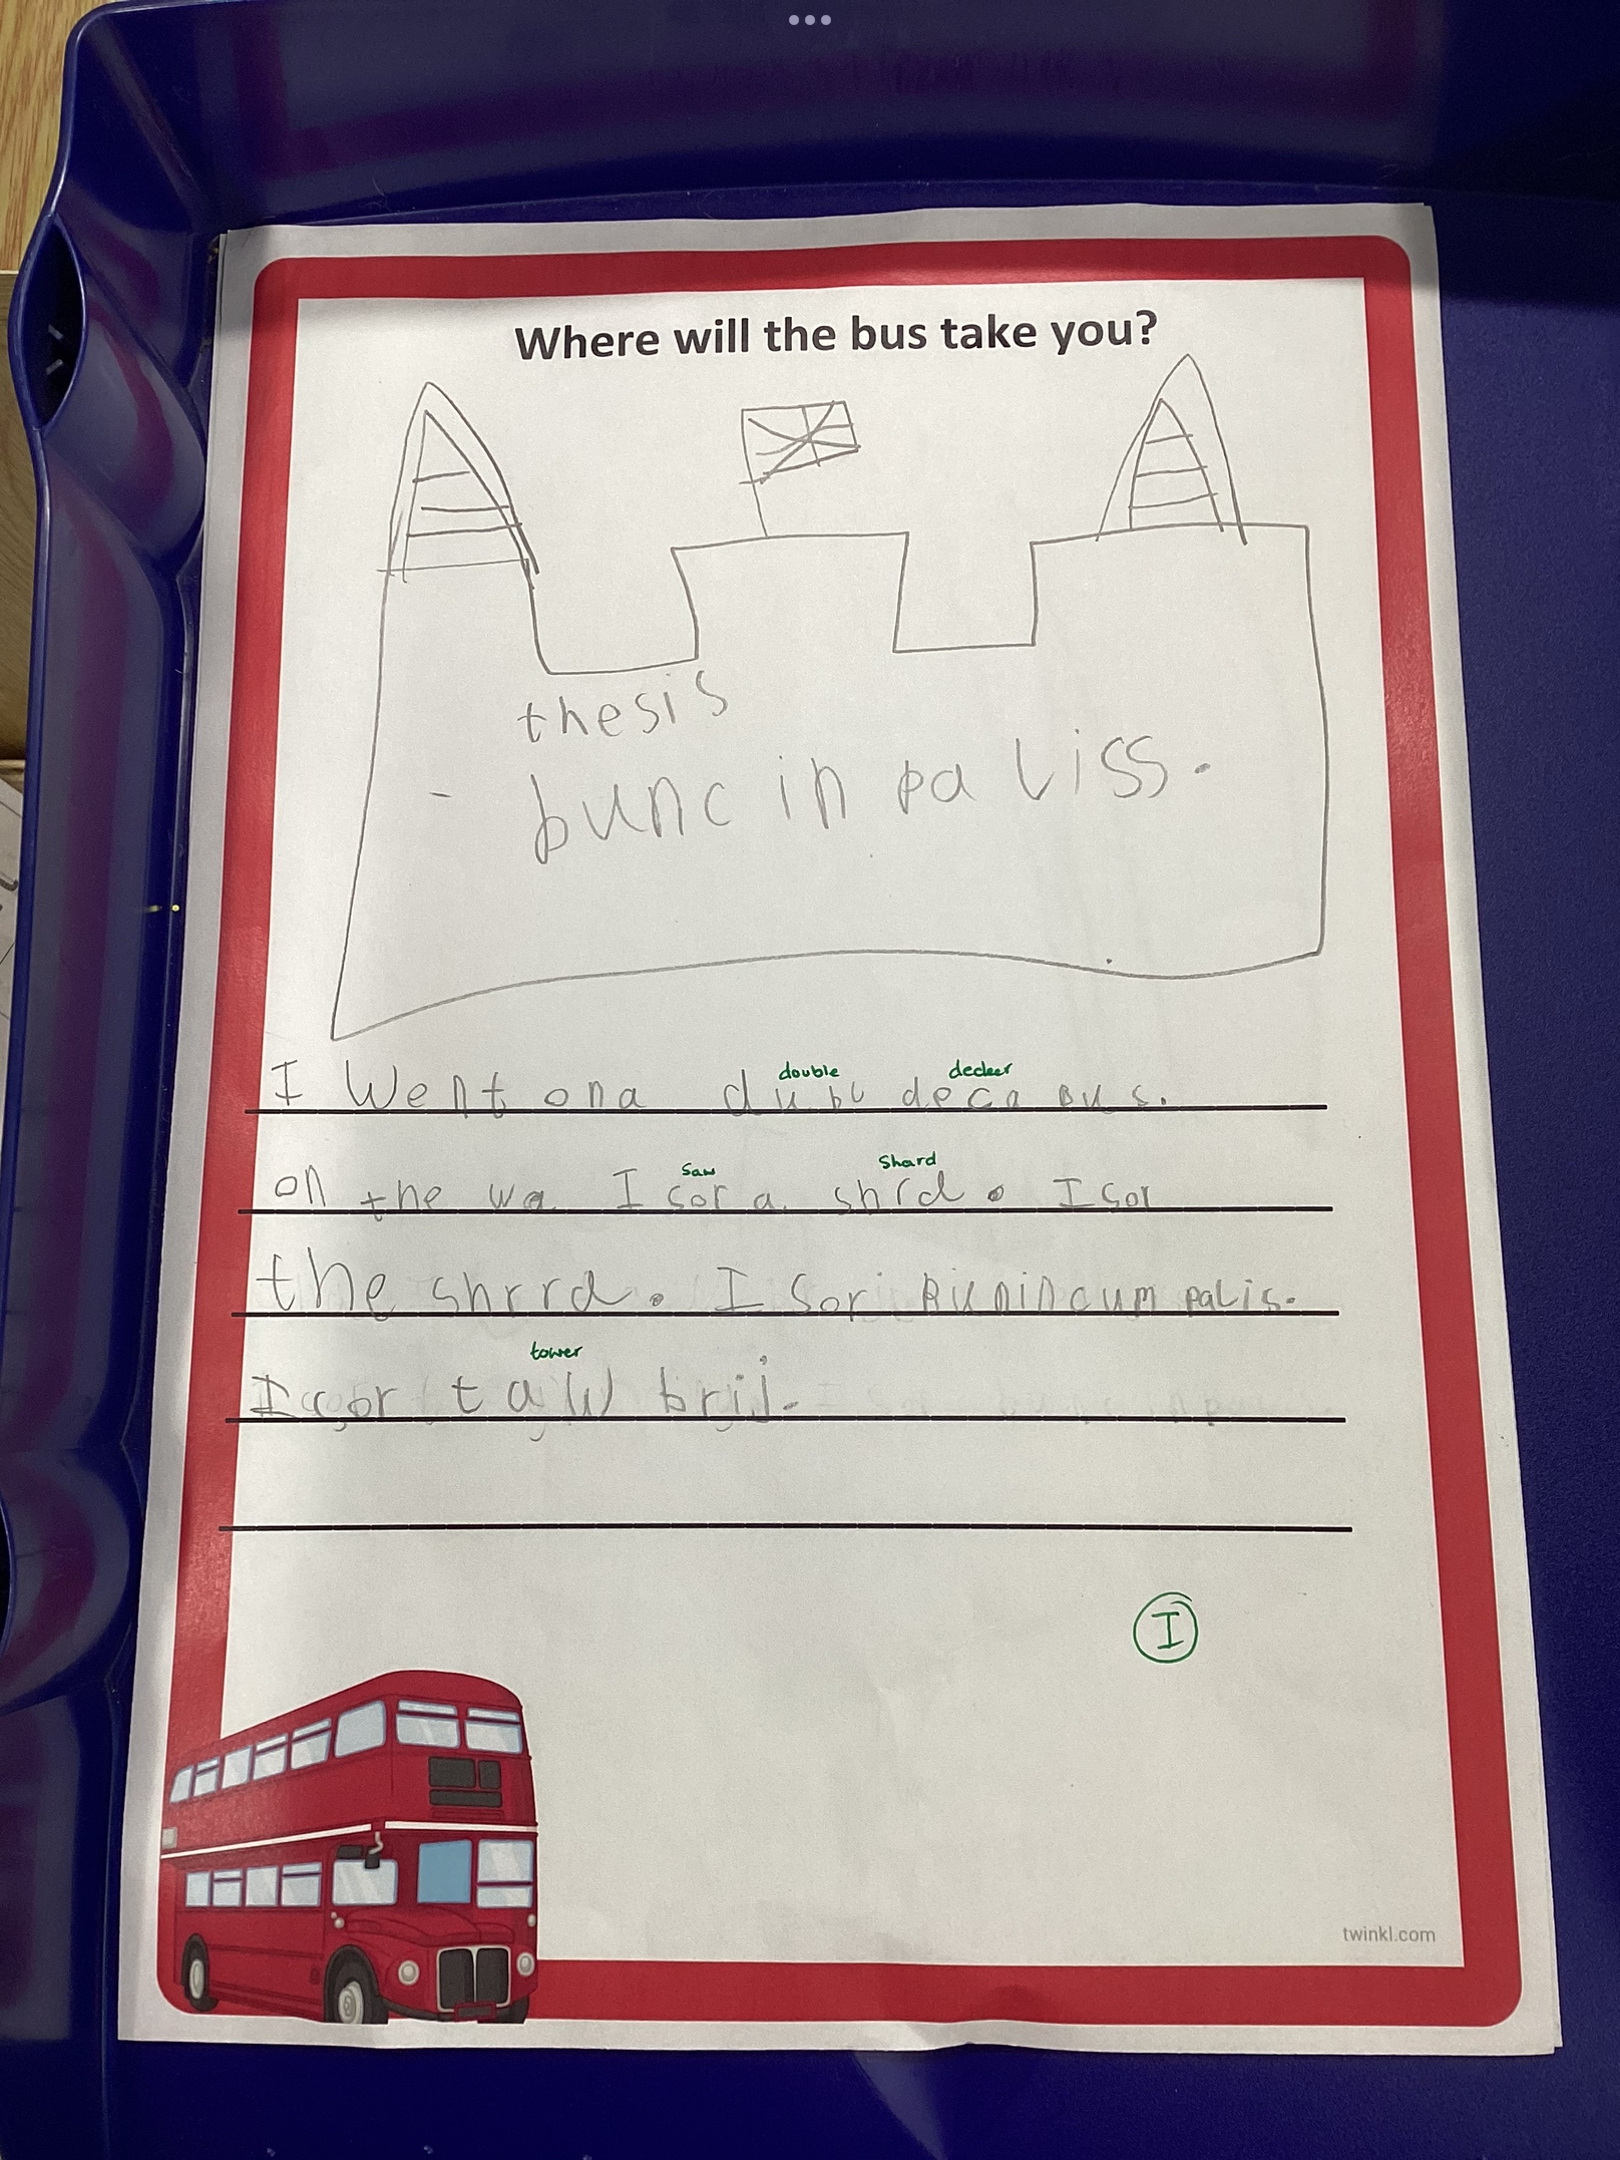 Where will the bus take you?
thesis
bunc in paliss.
double decker
I went on a dubl deca bus.
saw Shard
on the wa I sor a shrd. I sor
the shrrd. I sor Bunincum palis.
tower
I sor taw brij.
I
twinkl.com